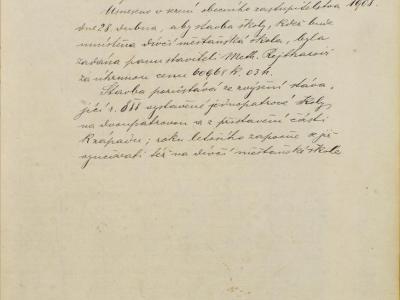 Usneseno v sezení obecního zastupitelstva 1908.
dne 28. dubna, aby stavba školy, kdež bude
umístěna dívčí měšťanská škola, byla
zadána panu staviteli Meth. Rejtharovi
za úhrnnou cenu 60968 K. 03 h.
Stavba pozůstává ze zvýšení stáva-
jící r. 188 vystavené jednopatrové školy
na dvoupatrovou a z přistavění části
k západu; roku letošního započne se již
vyučovati též na dívčí měšťanské škole.